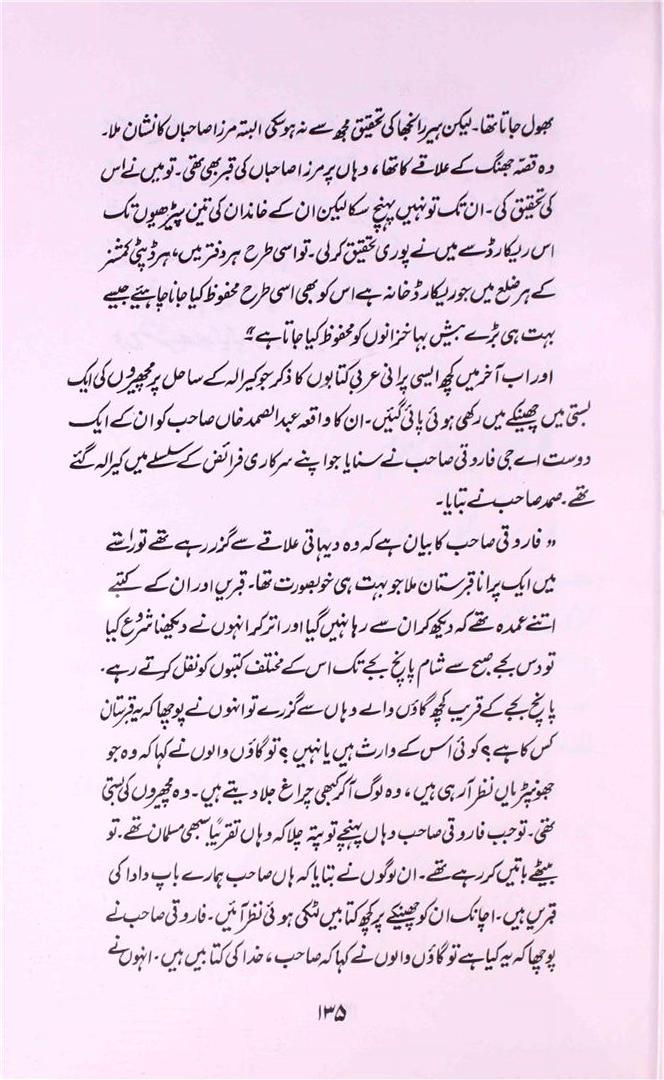 بھول جاتا تھا۔ لیکن ہیر رانجھا کی تحقیق مجھ سے نہ ہو سکی البتہ مرزا صاحباں کا نشان ملا۔
وہ قصّہ جھنگ کے علاقے کا تھا، وہاں پر مرزا صاحباں کی قبر بھی تھی۔ تو میں نے اس
کی تحقیق کی۔ ان تک تو نہیں پہنچ سکا لیکن ان کے خاندان کی تین پیڑھیوں تک
اس ریکارڈ سے میں نے پوری تحقیق کر لی۔ تو اسی طرح ہر دفتر میں، ہر ڈپٹی کمشنر
کے ہر ضلع میں جو ریکارڈ خانہ ہے اس کو بھی اسی طرح محفوظ کیا جانا چاہئیے جیسے
بہت ہی بڑے بیش بہا خزانوں کو محفوظ کیا جاتا ہے“
اور اب آخر میں کچھ ایسی پرانی عربی کتابوں کا ذکر جو کیرالہ کے ساحل پر مچھیروں کی ایک
بستی میں چھینکے میں رکھی ہوئی پائی گئیں۔ ان کا واقعہ عبدالصمد خاں صاحب کو ان کے ایک
دوست اے جی فاروقی صاحب نے سنایا جو اپنے سرکاری فرائض کے سلسلے میں کیرالہ گئے
تھے۔ صمد صاحب نے بتایا۔
”فاروقی صاحب کا بیان ہے کہ وہ دیہاتی علاقے سے گزر رہے تھے تو راستے
میں ایک پرانا قبرستان ملا جو بہت ہی خوبصورت تھا۔ قبریں اور ان کے کتبے
اتنے عمدہ تھے کہ دیکھ کر ان سے رہا نہیں گیا اور اتر کر انہوں نے دیکھنا شروع کیا
تو دس بجے صبح سے شام پانچ بجے تک اس کے مختلف کتبوں کو نقل کرتے رہے۔
پانچ بجے کے قریب کچھ گاؤں والے وہاں سے گزرے تو انہوں نے پوچھا کہ یہ قبرستان
کس کا ہے؟ کوئی اس کے وارث ہیں یا نہیں؟ تو گاؤں والوں نے کہا کہ وہ جو
جھونپڑیاں نظر آ رہی ہیں، وہ لوگ آ کر کبھی چراغ جلا دیتے ہیں۔ وہ مچھیروں کی بستی
تھی۔ تو جب فاروقی صاحب وہاں پہنچے تو پتہ چلا کہ وہاں تقریباً سبھی مسلمان تھے۔ تو
بیٹھے باتیں کر رہے تھے۔ ان لوگوں نے بتایا کہ ہاں صاحب ہمارے باپ دادا کی
قبریں ہیں۔ اچانک ان کو چھینکے پر کچھ کتابیں لٹکی ہوئی نظر آئیں۔ فاروقی صاحب نے
پوچھا کہ یہ کیا ہے تو گاؤں والوں نے کہا کہ صاحب، خدا کی کتابیں ہیں۔ انہوں نے
۱۳۵